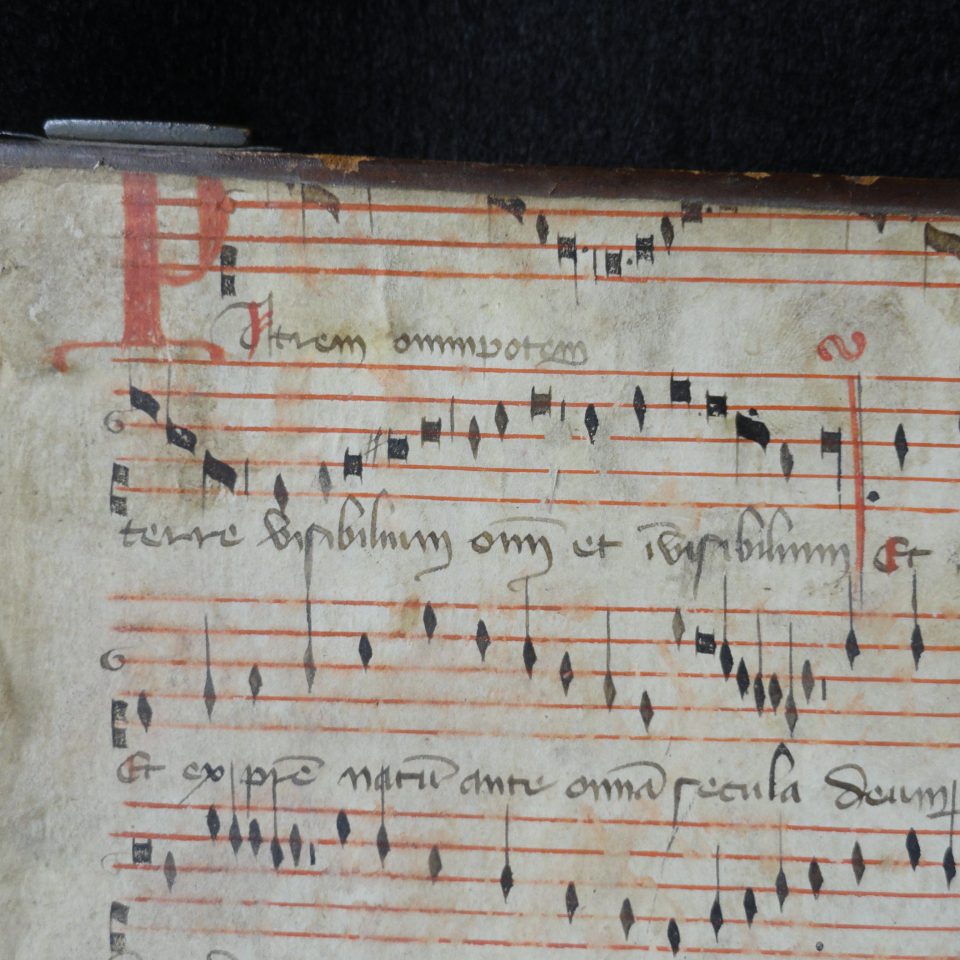 PAtrem omnipotem
terre visibilium omĩ et ĩvisibilium Et
Et ex pr̃e natũ ante omnã secula deum